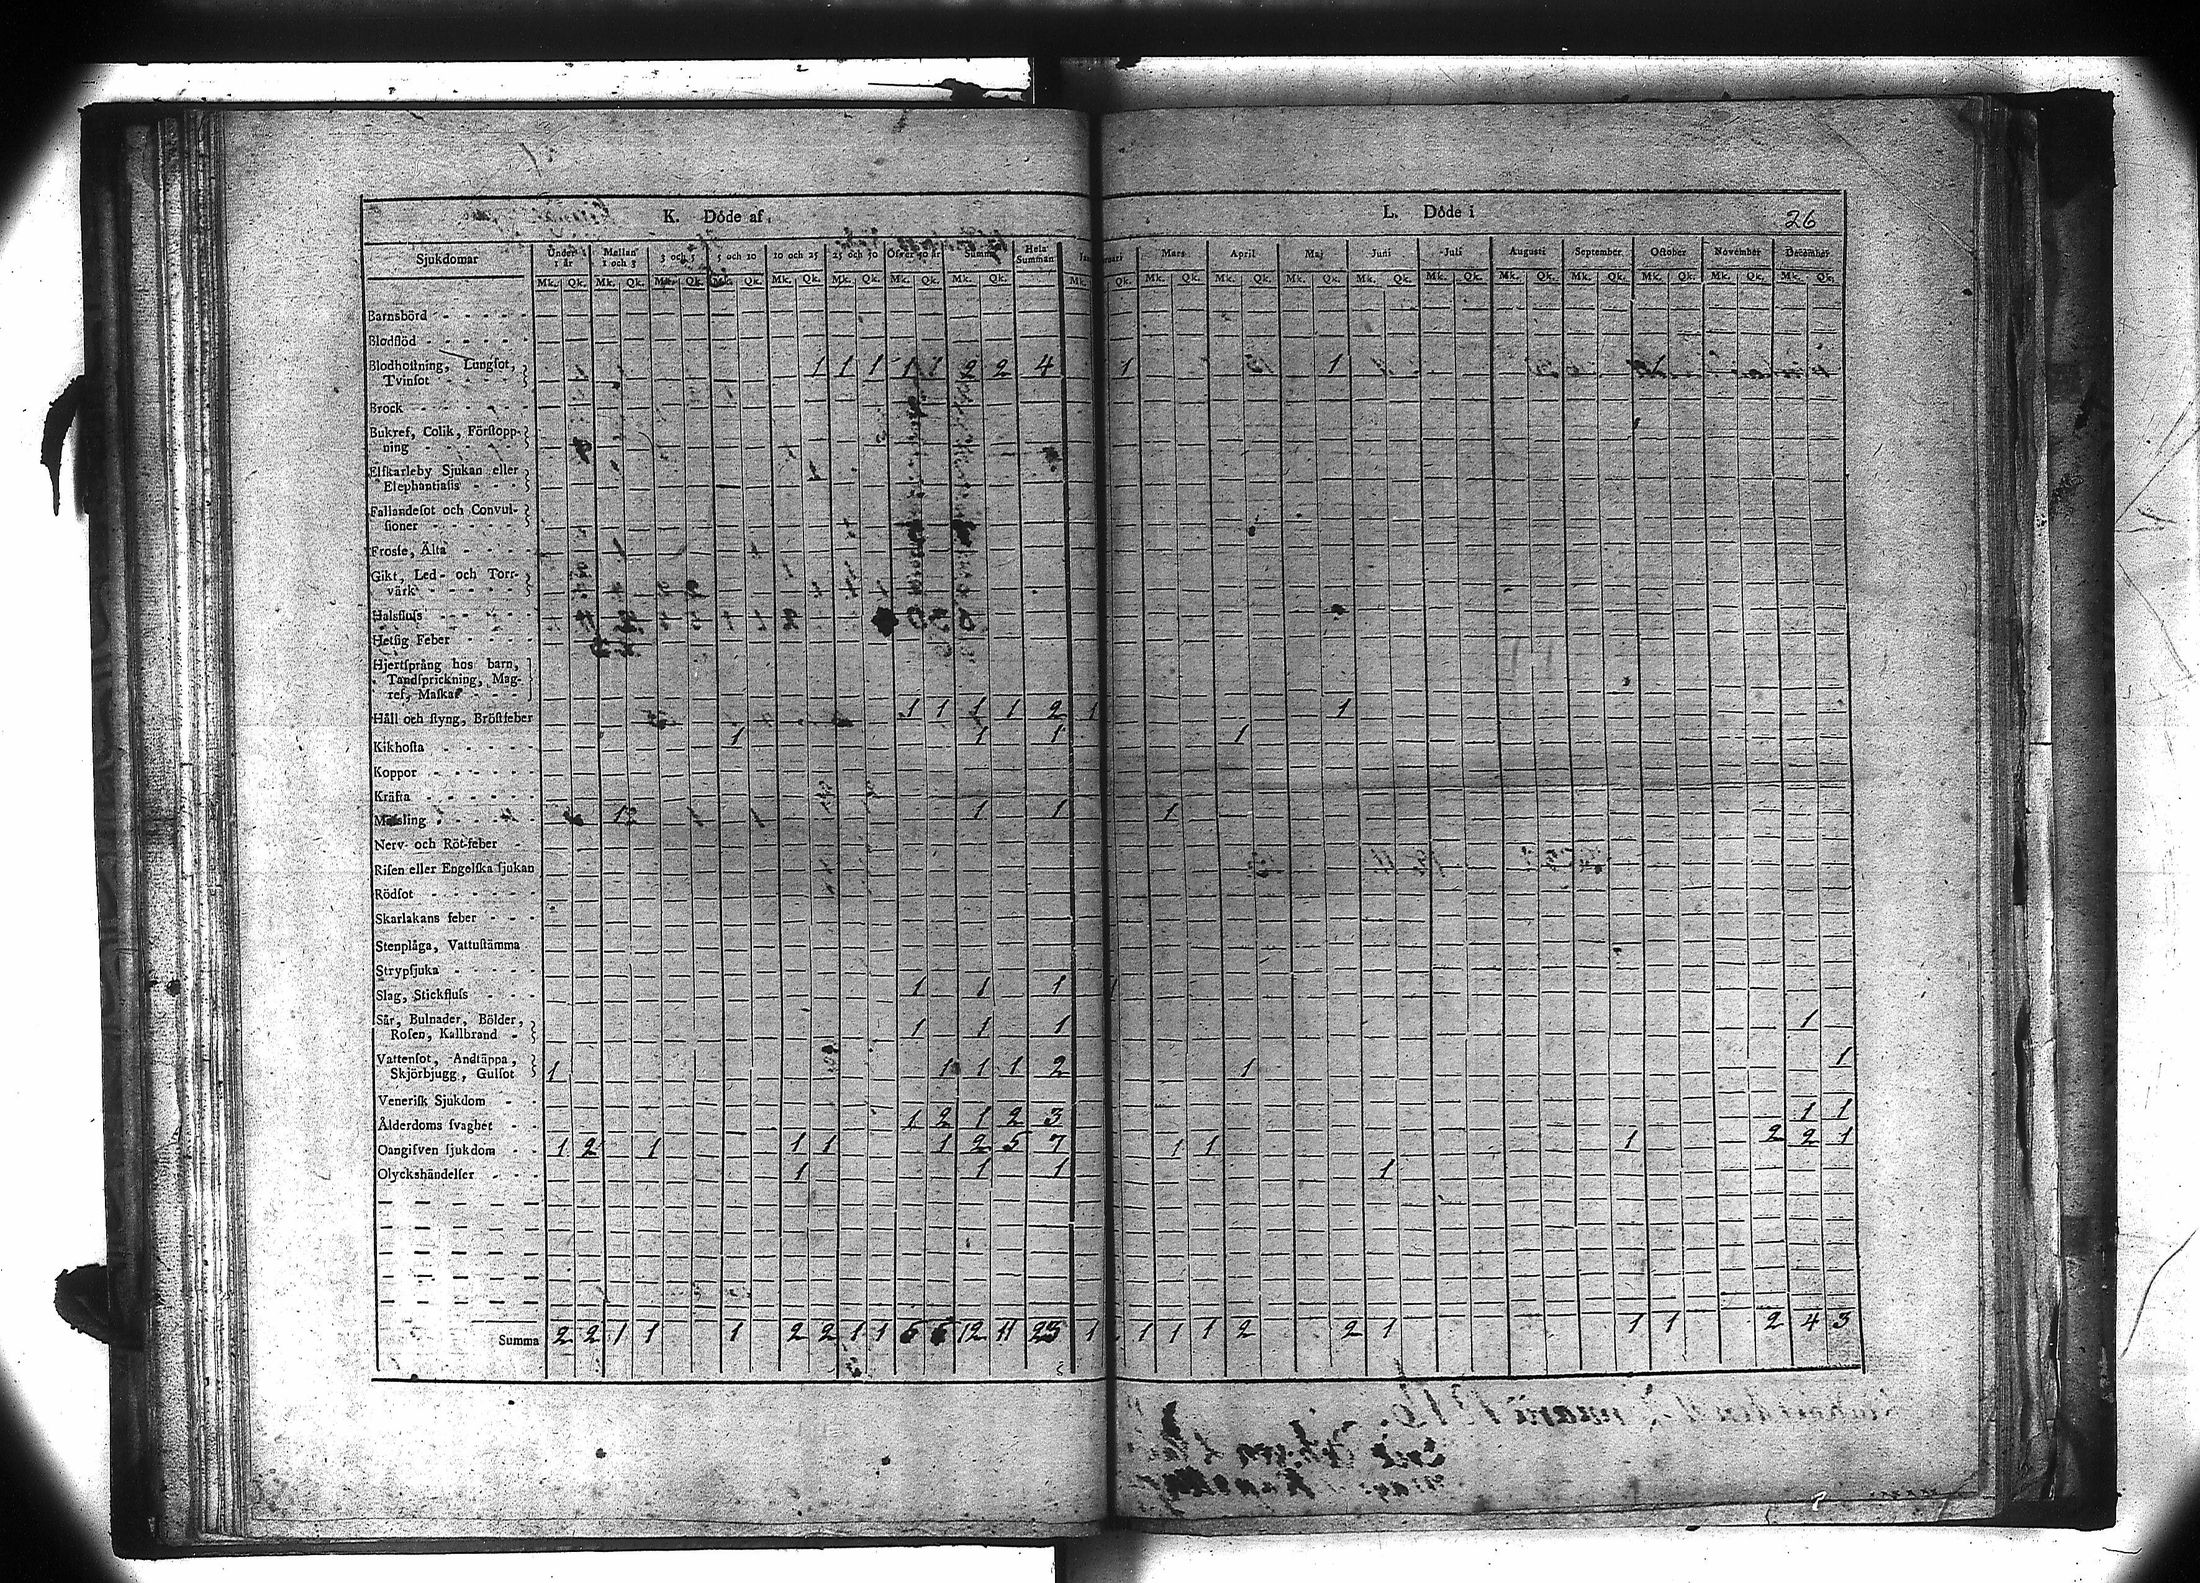 K. Döde af,
L. Döde i
26
Sjukdomar Under 1 år Mellan 1 och 3 3 och 5 5 och 10 10 och 25 25 och 50 Öfver 50 år Summa Hela Summan Januari Mars April Maj Juni Juli Augusti September October November December
Mk. Qk. Mk. Qk. Mk. Qk. Mk. Qk. Mk. Qk. Mk. Qk. Mk. Qk. Mk. Qk. Mk. Qk. Mk. Qk. Mk. Qk. Mk. Qk. Mk. Qk. Mk. Qk. Mk. Qk. Mk. Qk. Mk. Qk. Mk. Qk. Mk. Qk.
Barnsbörd
Blodflöd
Blodhoſtning, Lungſot,
Tvinſot 1 1 1 1 1 2 2 4 1 1
Brock
Bukref, Colik, Förſtopp-
ning
Elfkarleby Sjukan eller
Elephantiaſis
Fallandeſot och Convul-
ſioner
Froſſe, Älta
Gikt, Led- och Torr-
värk
Halsfluſs
Hetſig Feber
Hjertſprång hos barn,
Tandſprickning, Mag-
ref, Maſkar
Håll och ſtyng, Bröſtfeber 1 1 1 1 2 1 1
Kikhoſta 1 1 1 1
Koppor
Kräfta
Meſsling 1 1 1
Nerv- och Röt-feber
Riſen eller Engelſka ſjukan
Rödſot
Skarlakans feber
Stenplåga, Vattuſtämma
Strypſjuka
Slag, Stickfluſs 1 1 1 1
Sår, Bulnader, Bölder,
Roſen, Kallbrand 1 1 1 1
Vattenſot, Andtäppa,
Skjörbjugg, Gulſot 1 1 1 1 2 1 1
Veneriſk Sjukdom
Ålderdoms ſvaghet 1 2 1 2 3 1 1
Oangifven ſjukdom 1 2 1 1 1 1 2 5 7 1 1 1 2 2 1
Olyckshändelſer 1 1 1 1
Summa 2 2 1 1 1 2 2 1 1 5 6 12 11 23 1 1 1 1 2 2 1 1 1 2 4 3